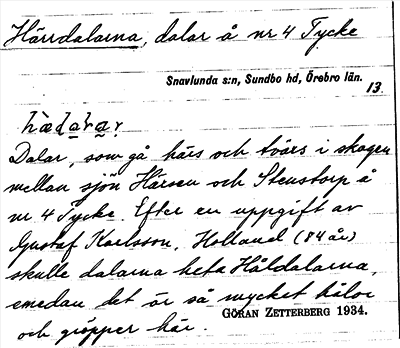 Härrdalarna, dalar å nr 4 Tycke
Snavlunda s:n, Sundbo hd, Örebro län.
13.
Dalar, som gå härs och tvärs i skogen
mellan sjön Härsen och Stenstorp å
nr 4 Tycke. Efter en uppgift av
Gustaf Karlsson, Holland (84 år)
skulle dalarna heta Håldalarna,
emedan det är så mycket hålor
och gröpper här.
GÖRAN ZETTERBERG 1934.